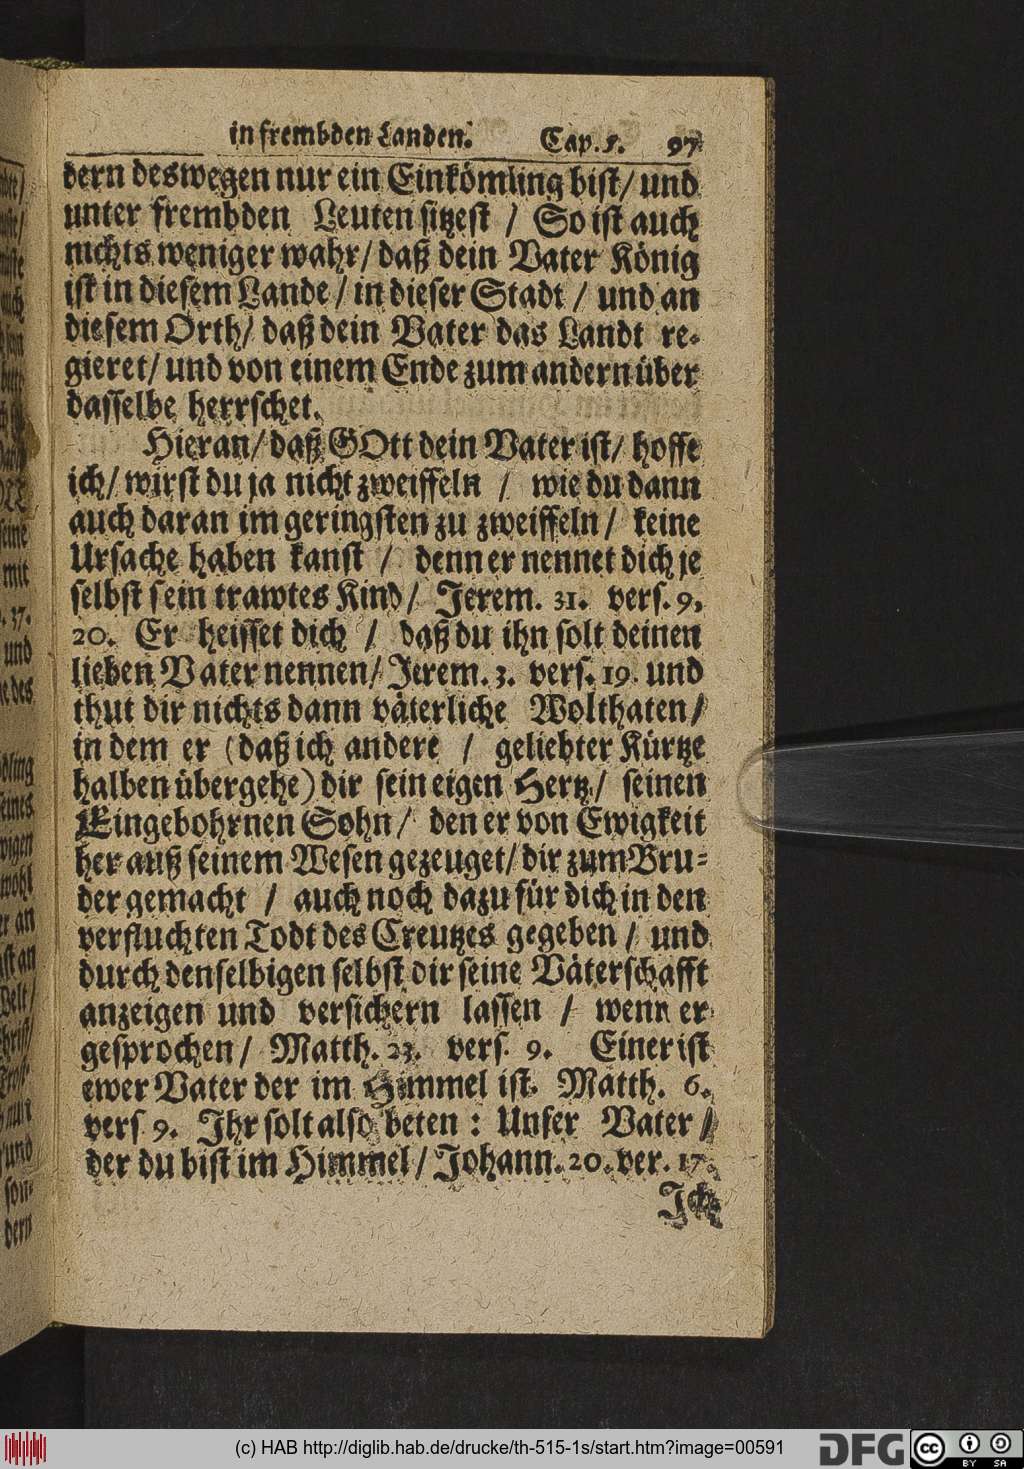 in frembden Landen. Cap. 5. 97
dern deswegen nur ein Einkömling bist/ und
unter frembden Leuten sitzest / So ist auch
nichts weniger wahr/ daß dein Vater König
ist in diesem Lande / in dieser Stadt / und an
diesem Orth/ daß dein Vater das Landt re-
gieret/ und von einem Ende zum andern über
dasselbe herrschet.
Hieran/ daß GOtt dein Vater ist/ hoffe
ich/ wirst du ja nicht zweiffeln / wie du dann
auch daran im geringsten zu zweiffeln / keine
Ursache haben kanst / denn er nennet dich je
selbst sein trawtes Kind / Jerem. 31. vers. 9.
20. Er heisset dich / daß du ihn solt deinen
lieben Vater nennen/ Jerem. 3. vers. 19. und
thut dir nichts dann väterliche Wolthaten/
in dem er (daß ich andere / geliebter Kürtze
halben übergehe) dir sein eigen Hertz / seinen
Eingebohrnen Sohn / den er von Ewigkeit
her auß seinem Wesen gezeuget/ dir zum Bru-
der gemacht / auch noch dazu für dich in den
verfluchten Todt des Creutzes gegeben / und
durch denselbigen selbst dir seine Väterschafft
anzeigen und versichern lassen / wenn er
gesprochen / Matth. 23. vers. 9. Einer ist
ewer Vater der im Himmel ist. Matth. 6.
vers 9. Ihr solt also beten : Unser Vater /
der du bist im Himmel / Johann. 20. ver. 17.
Ich
(c) HAB http://diglib.hab.de/drucke/th-515-1s/start.htm?image=00591
DFG cc BY SA